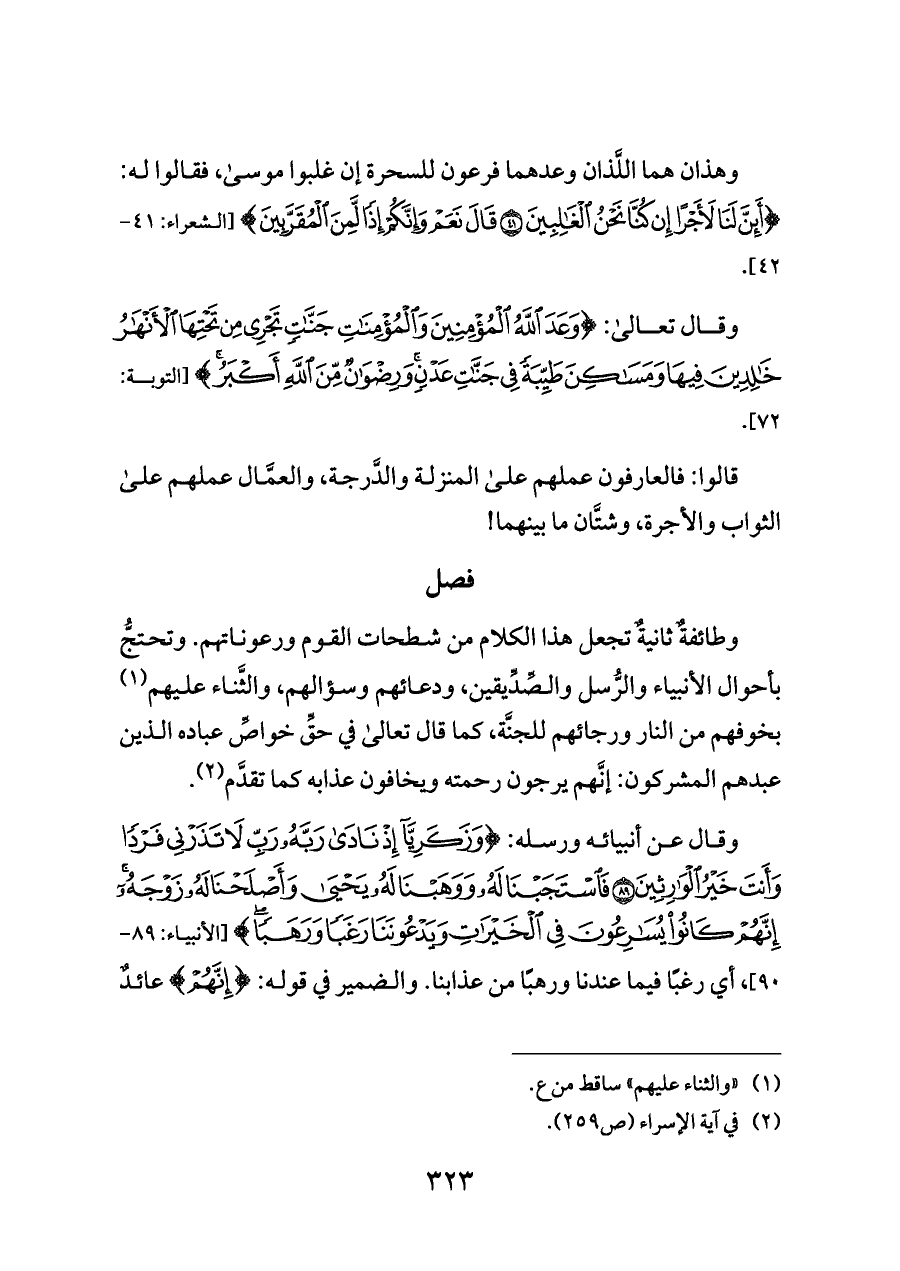 وهذان هما اللَّذان وعدهما فرعون للسحرة إن غلبوا موسىٰ، فقالوا له:
﴿أَئِنَّ لَنَا لَأَجْرًا إِن كُنَّا نَحْنُ ٱلْغَٰلِبِينَ ٤١ قَالَ نَعَمْ وَإِنَّكُمْ إِذًا لَّمِنَ ٱلْمُقَرَّبِينَ﴾ [الشعراء: ٤١-
٤٢].
وقال تعالىٰ: ﴿وَعَدَ ٱللَّهُ ٱلْمُؤْمِنِينَ وَٱلْمُؤْمِنَٰتِ جَنَّٰتٍ تَجْرِى مِن تَحْتِهَا ٱلْأَنْهَٰرُ
خَٰلِدِينَ فِيهَا وَمَسَٰكِنَ طَيِّبَةً فِى جَنَّٰتِ عَدْنٍ ۚ وَرِضْوَٰنٌ مِّنَ ٱللَّهِ أَكْبَرُ ۚ﴾ [التوبة:
٧٢].
قالوا: فالعارفون عملهم علىٰ المنزلة والدَّرجة، والعمَّال عملهم علىٰ
الثواب والأجرة، وشتَّان ما بينهما!
فصل
وطائفةٌ ثانيةٌ تجعل هذا الكلام من شطحات القوم ورعوناتهم. وتحتجُّ
بأحوال الأنبياء والرُّسل والصِّدِّيقين، ودعائهم وسؤالهم، والثَّناء عليهم(١)
بخوفهم من النار ورجائهم للجنَّة، كما قال تعالىٰ في حقِّ خواصِّ عباده الذين
عبدهم المشركون: إنَّهم يرجون رحمته ويخافون عذابه كما تقدَّم(٢).
وقال عن أنبيائه ورسله: ﴿وَزَكَرِيَّآ إِذْ نَادَىٰ رَبَّهُۥ رَبِّ لَا تَذَرْنِى فَرْدًا
وَأَنتَ خَيْرُ ٱلْوَٰرِثِينَ ٨٩ فَٱسْتَجَبْنَا لَهُۥ وَوَهَبْنَا لَهُۥ يَحْيَىٰ وَأَصْلَحْنَا لَهُۥ زَوْجَهُۥٓ ۚ
إِنَّهُمْ كَانُوا۟ يُسَٰرِعُونَ فِى ٱلْخَيْرَٰتِ وَيَدْعُونَنَا رَغَبًا وَرَهَبًا ۖ﴾ [الأنبياء: ٨٩-
٩٠]، أي رغبًا فيما عندنا ورهبًا من عذابنا. والضمير في قوله: ﴿إِنَّهُمْ﴾ عائدٌ
(١) «والثناء عليهم» ساقط من ع.
(٢) في آية الإسراء (ص٢٥٩).
٣٢٣